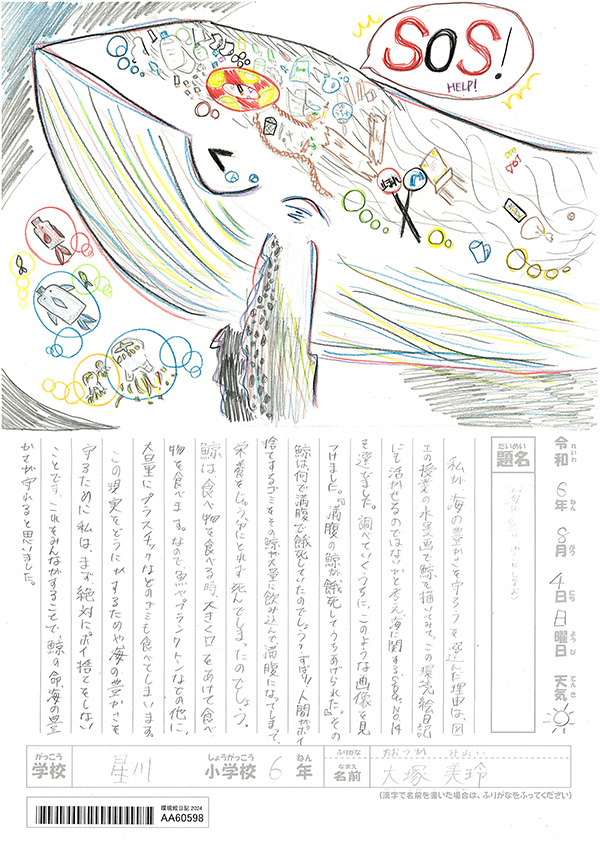 SOS!
HELP!
令和6年8月4日日曜日 天気
れいわ ねん がつ にち ようび てんき
だいめい
題名
私が「海の豊かさを守ろう」を選んだ理由は、図
工の授業の水墨画で鯨を描いてみて、この環境絵日記
にも活かせるのではないかと考え、海に関するSDGs、NO.14
を選びました。調べていくうちに、このような画像を見
つけました。『満腹の鯨が餓死してうちあげられた』。その
鯨は何で満腹で餓死していたのでしょう?ずばり!人間がポイ
捨てするゴミをその鯨が大量に飲み込んで満腹になってしまって、
栄養をじゅうぶんにとれず死んでしまったのでしょう。
鯨は食べ物を食べる時、大きく口をあけて食べ
物を食べます。なので、魚やプランクトンなどの他に、
大量にプラスチックなどのゴミも食べてしまいます。
この現実をどうにかするためや海の豊かさを
守るために私は、まず絶対にポイ捨てをしない
ことです。これをみんながすることで、鯨の命、海の豊
かさが守れると思いました。
がっこう しょうがっこう ねん ふりがな おおつか みれい
学校 星川 小学校 6年 なまえ 名前 大塚 美玲
(漢字で名前を書いた場合は、ふりがなをふってください)
環境絵日記 2024
AA60598